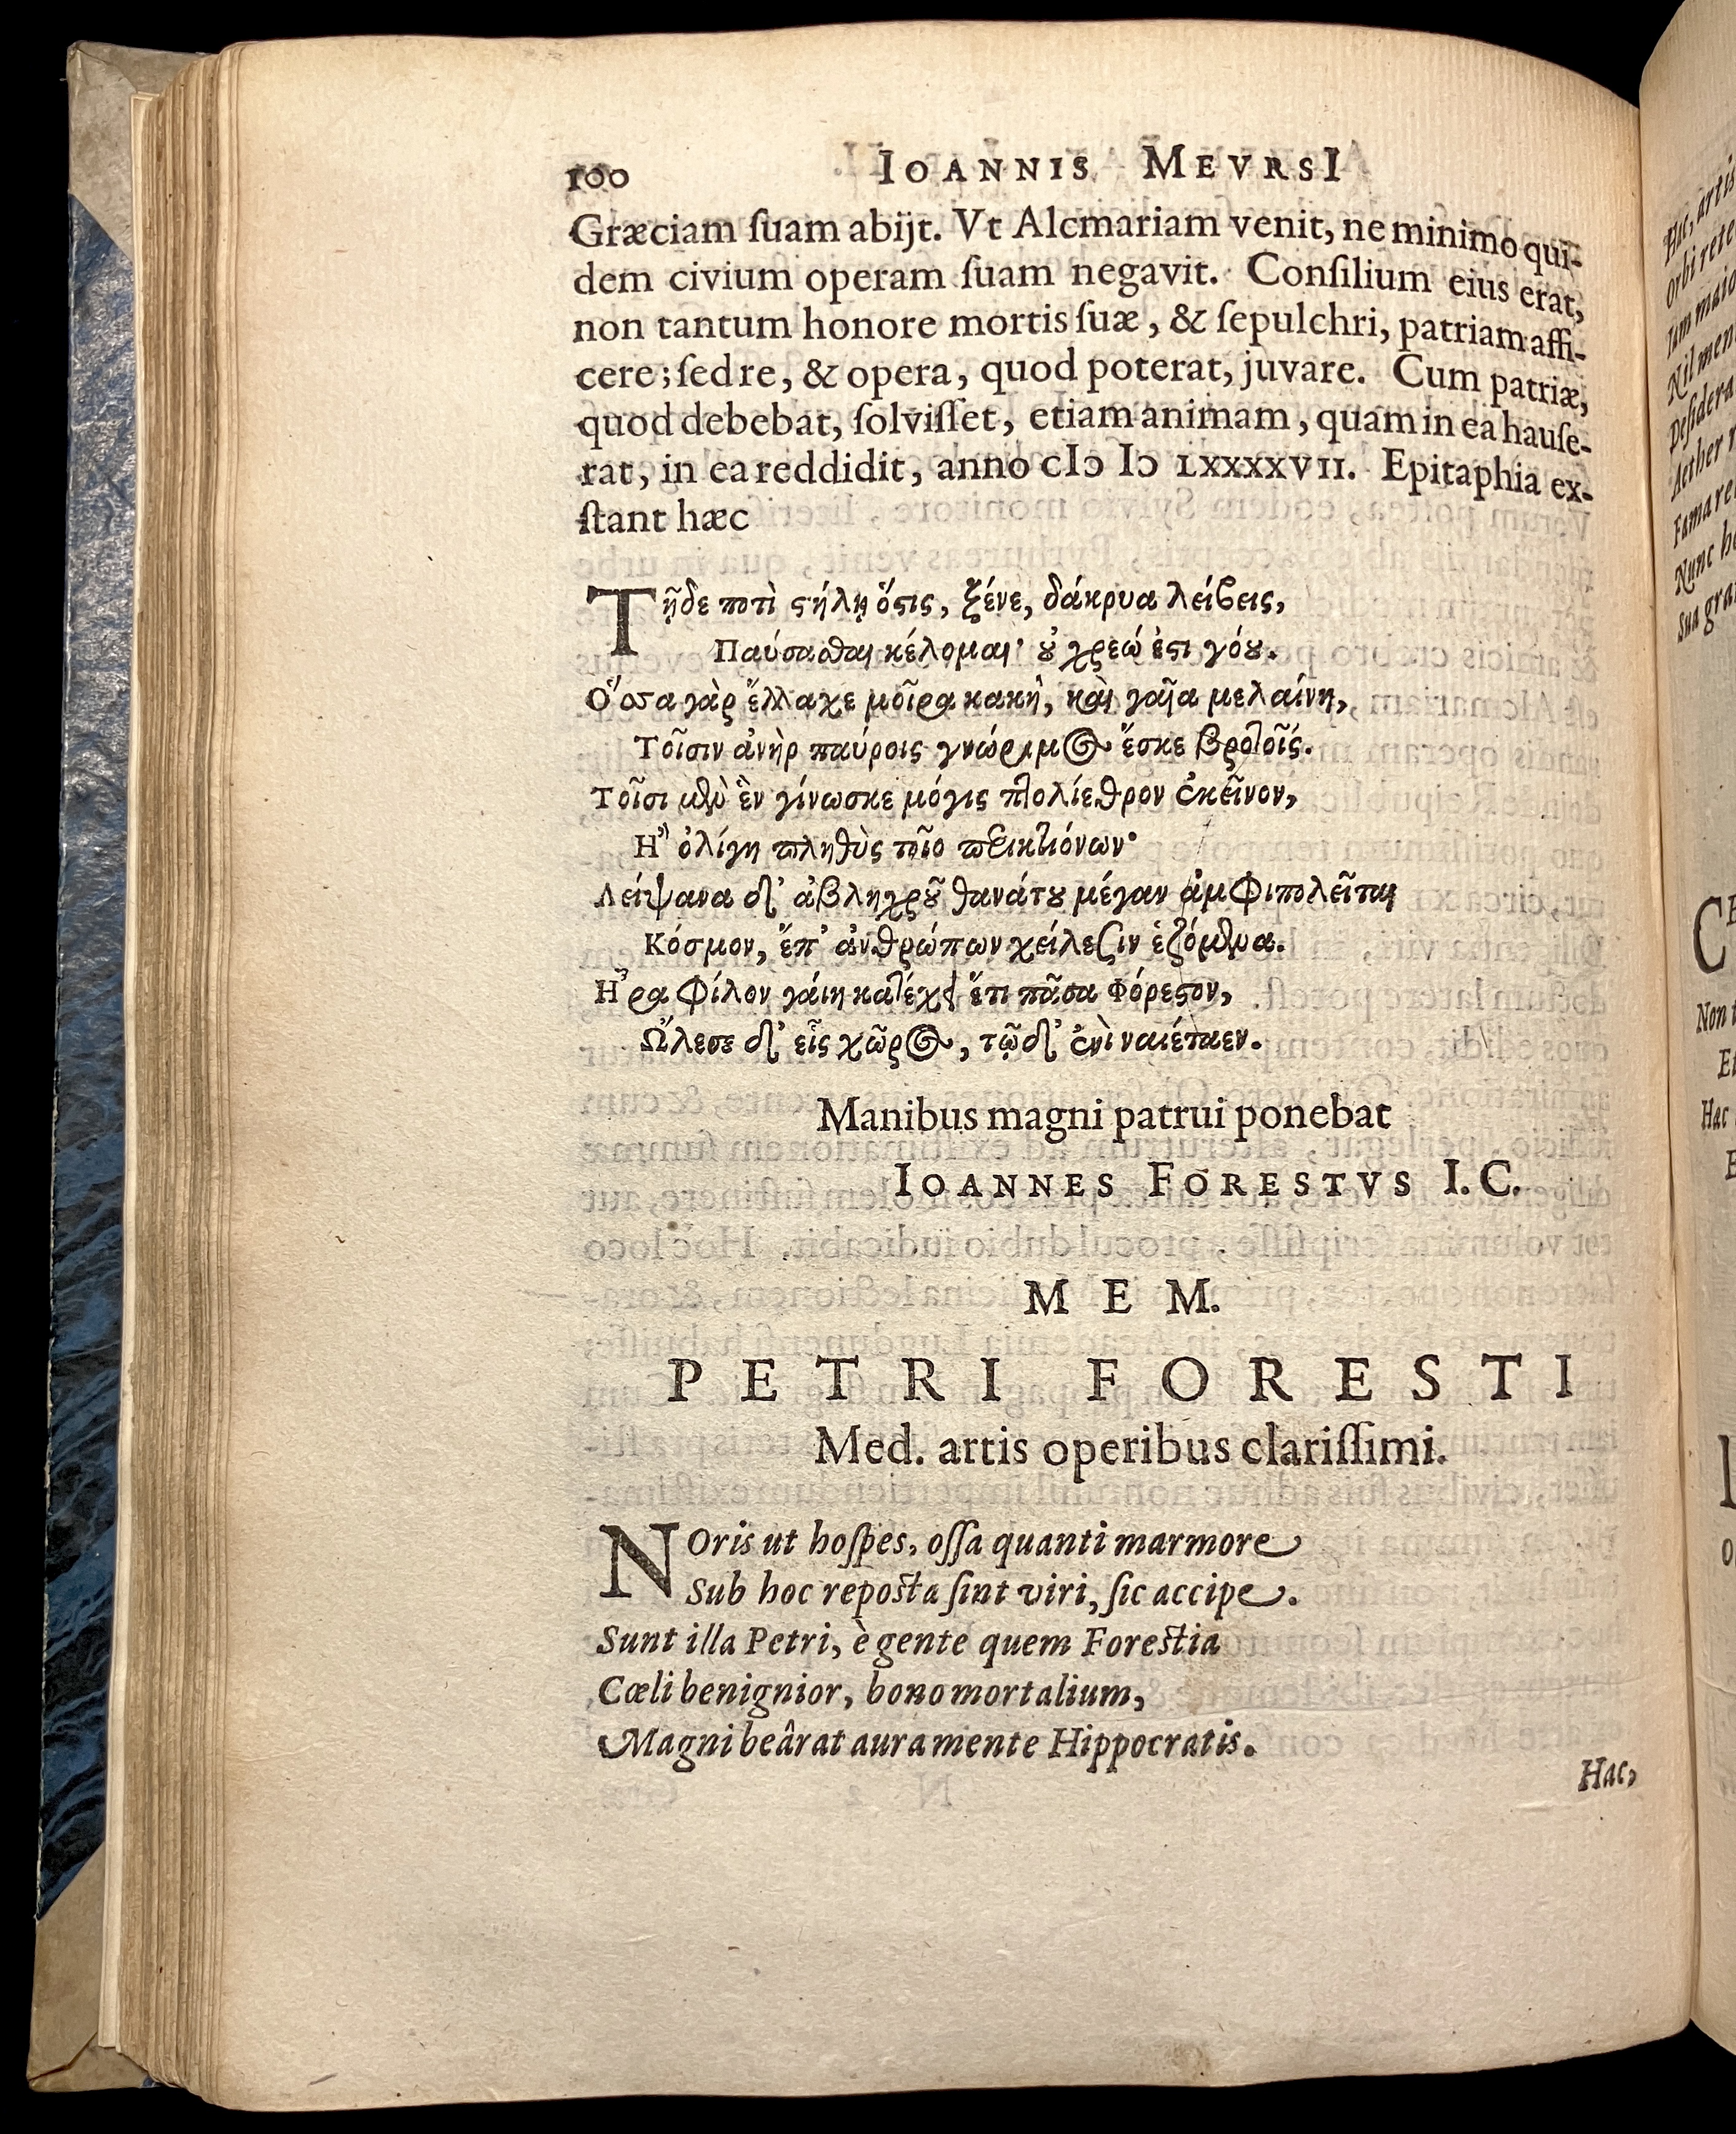 100 IOANNIS MEVRSI
Græciam ſuam abijt. Vt Alcmariam venit, ne minimo qui-
dem civium operam ſuam negavit. Conſilium eius erat,
non tantum honore mortis ſuæ, & ſepulchri, patriam affi-
cere; ſed re, & opera, quod poterat, juvare. Cum patriæ,
quod debebat, ſolviſſet, etiam animam, quam in ea hauſe-
rat, in ea reddidit, anno cIɔ Iɔ LXXXXVII. Epitaphia ex-
ſtant hæc
Τῇδε ποτὶ ϛήλῃ ὅϛις, ξένε, δάκρυα λείβεις,
Παύσασθαι κέλομαι· ȣ̓ χρεώ ἐϛι γόȣ.
Ὅσσα γὰρ ἔλλαχε μοῖρα κακὴ, καὶ γαῖα μελαίνη,
Τοῖσιν ἀνὴρ παύροις γνώριμος ἔσκε βροτοῖς.
Τοῖσι μὲν ἓν γίνωσκε μόγις πτολίεθρον ἐκεῖνον,
Ἢ ὀλίγη πληθὺς τοῖο περικτιόνων·
Λείψανα δ' ἀβληχρȣ͂ θανάτȣ μέγαν ἀμφιπολεῖται
Κόσμον, ἔπ' ἀνθρώπων χείλεσιν ἑζόμενα.
Ἦ ρα φίλον γαίη κατέχει ἔτι πᾶσα Φόρεϛον,
Ὤλεσε δ' εἷς χῶρος, τῷ δ' ἐνὶ ναιέταεν.
Manibus magni patrui ponebat
IOANNES FORESTVS I. C.
MEM.
PETRI FORESTI
Med. artis operibus clariſſimi.
NOris ut hoſpes, oſſa quanti marmore
Sub hoc repoſta ſint viri, ſic accipe.
Sunt illa Petri, è gente quem Foreſtia
Cœli benignior, bono mortalium,
Magni beârat aura mente Hippocratis.
Hac,